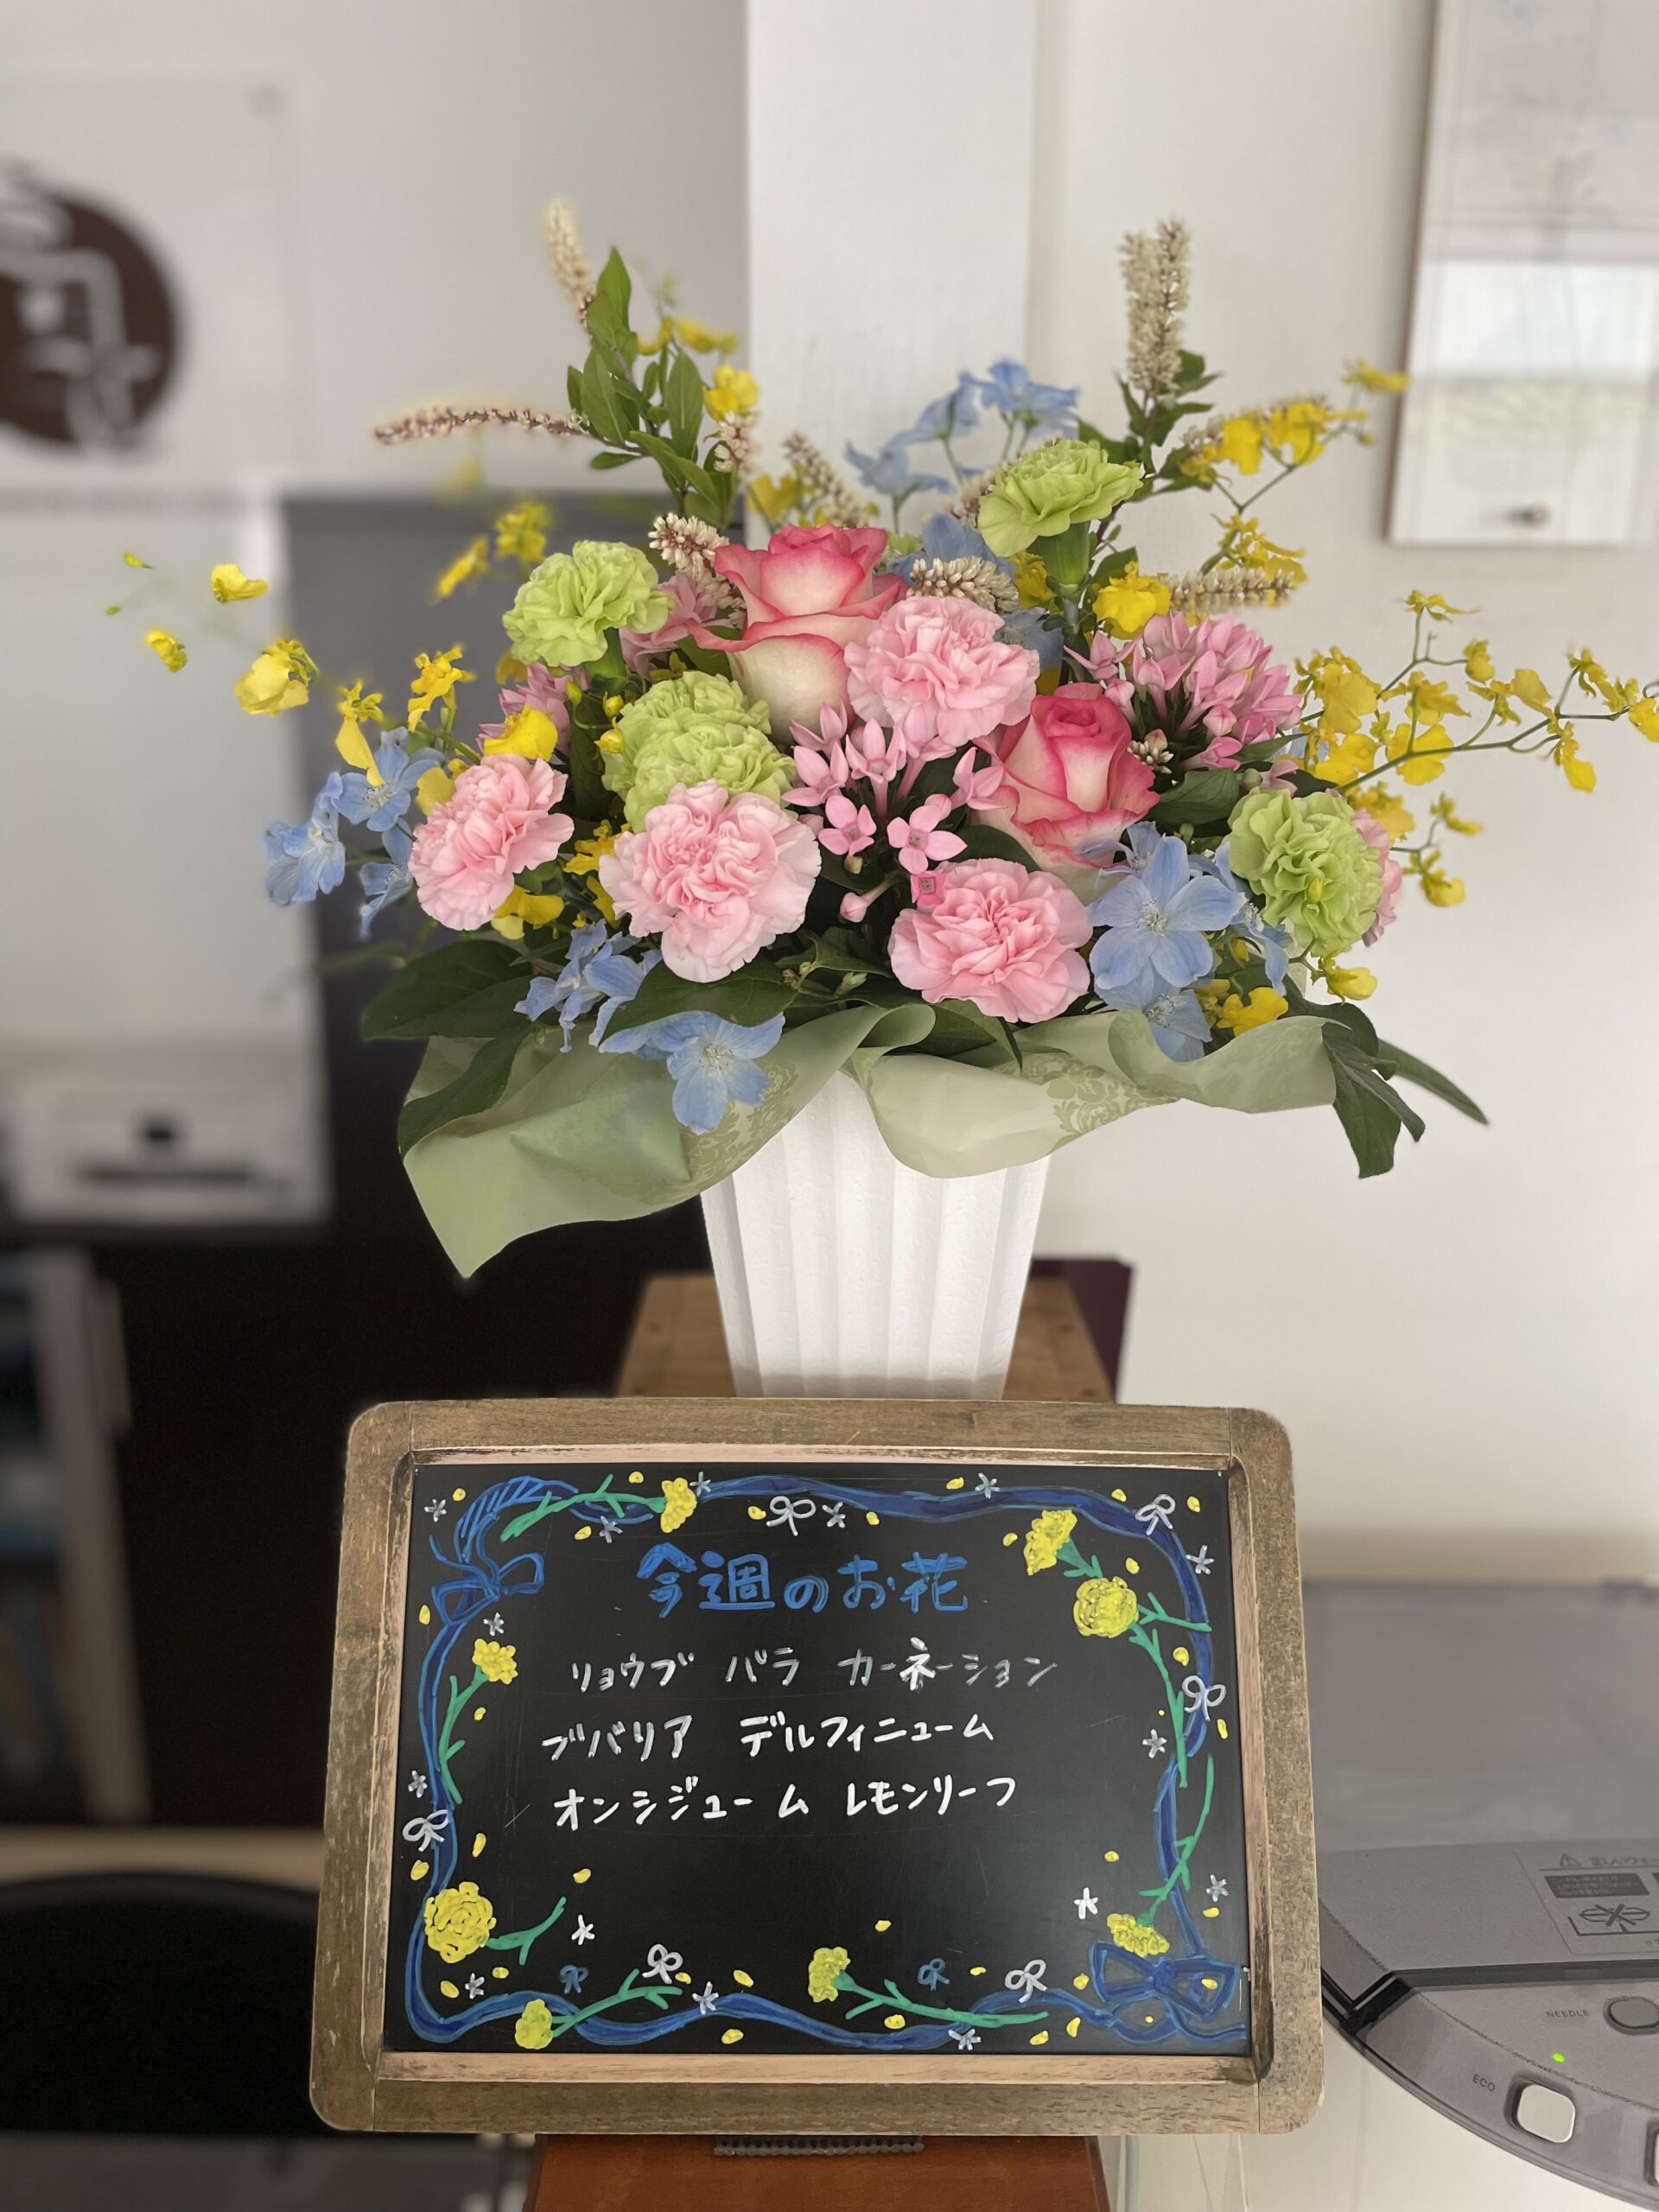 今週のお花
リョウブ バラ カーネーション
ブバリア デルフィニューム
オンシジューム レモンリーフ
NEEDLE
ECO